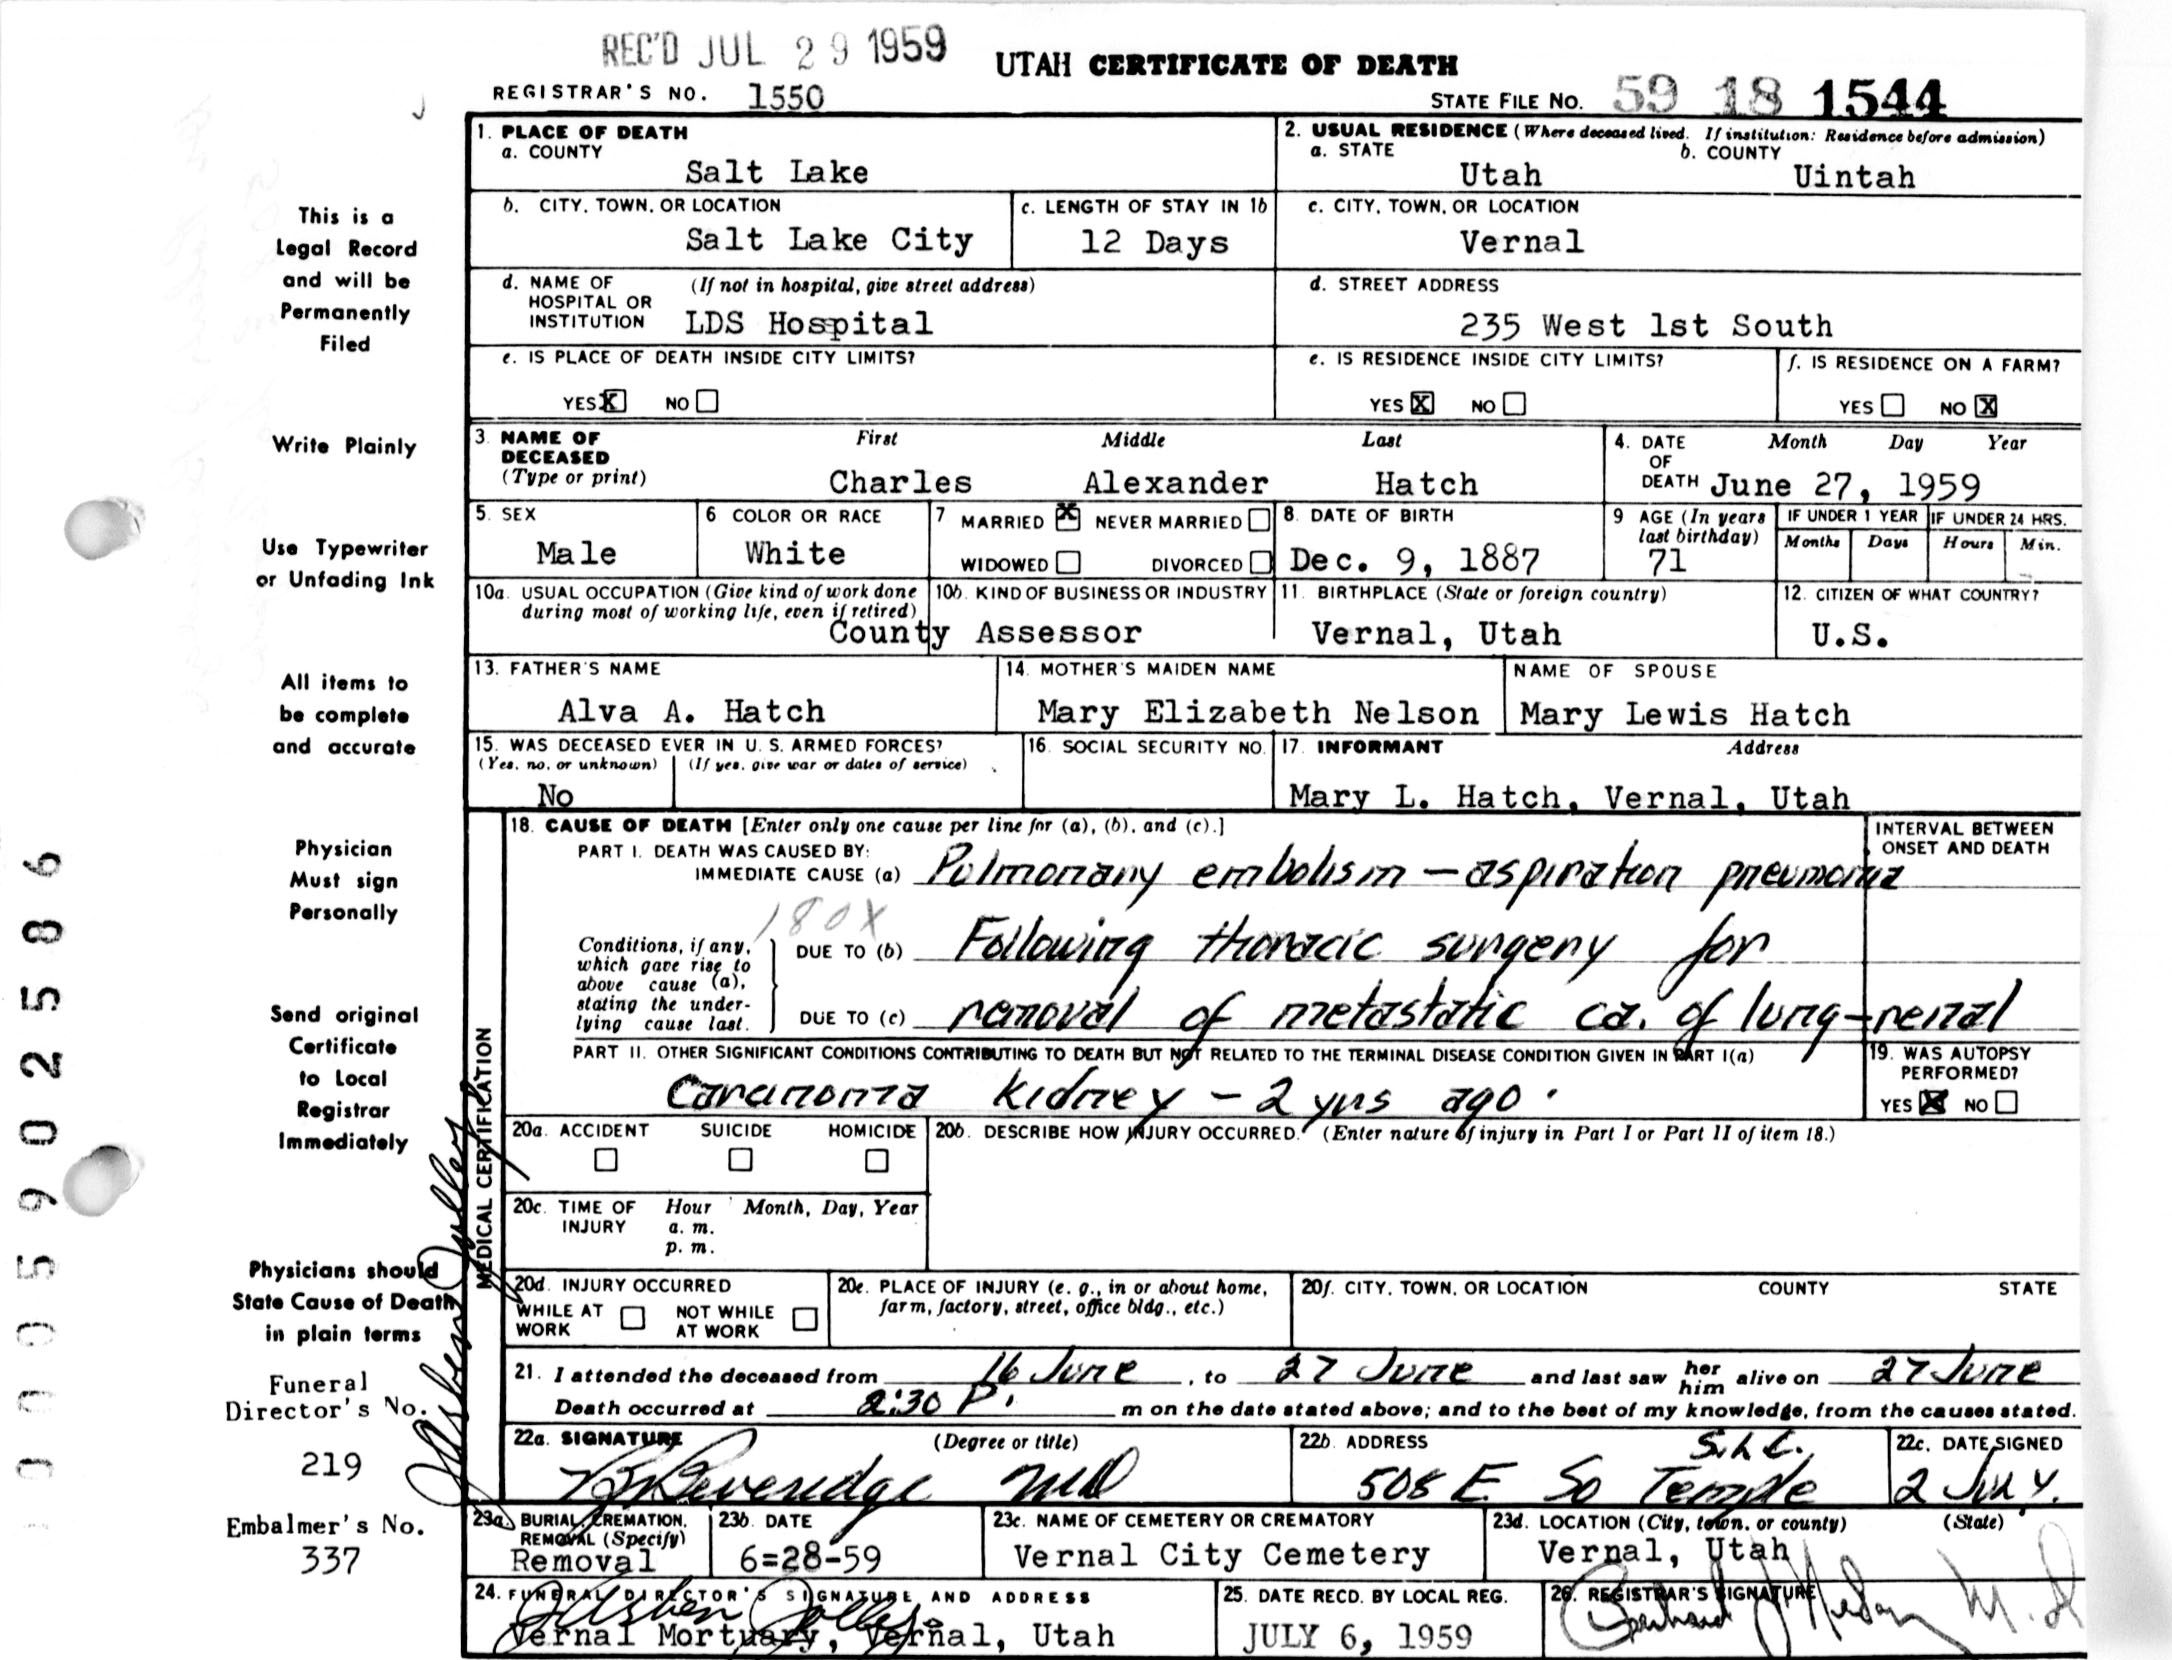 REC'D JUL 29 1959
UTAH CERTIFICATE OF DEATH
REGISTRAR'S NO. 1550
STATE FILE NO. 59 18 1544
1. PLACE OF DEATH
a. COUNTY
Salt Lake
2. USUAL RESIDENCE (Where deceased lived. If institution: Residence before admission)
a. STATE
Utah
b. COUNTY
Uintah
b. CITY, TOWN, OR LOCATION
Salt Lake City
c. LENGTH OF STAY IN 1b
12 Days
c. CITY, TOWN, OR LOCATION
Vernal
d. NAME OF HOSPITAL OR INSTITUTION
(If not in hospital, give street address)
LDS Hospital
d. STREET ADDRESS
235 West 1st South
e. IS PLACE OF DEATH INSIDE CITY LIMITS?
YES X NO
e. IS RESIDENCE INSIDE CITY LIMITS?
YES X NO
f. IS RESIDENCE ON A FARM?
YES NO X
3. NAME OF DECEASED
(Type or print)
First Middle Last
Charles Alexander Hatch
4. DATE OF DEATH
Month Day Year
June 27, 1959
5. SEX
Male
6 COLOR OR RACE
White
7 MARRIED X NEVER MARRIED
WIDOWED DIVORCED
8. DATE OF BIRTH
Dec. 9, 1887
9 AGE (In years last birthday)
71
IF UNDER 1 YEAR
Months Days
IF UNDER 24 HRS.
Hours Min.
10a. USUAL OCCUPATION (Give kind of work done during most of working life, even if retired)
10b. KIND OF BUSINESS OR INDUSTRY
County Assessor
11. BIRTHPLACE (State or foreign country)
Vernal, Utah
12. CITIZEN OF WHAT COUNTRY?
U.S.
13. FATHER'S NAME
Alva A. Hatch
14. MOTHER'S MAIDEN NAME
Mary Elizabeth Nelson
NAME OF SPOUSE
Mary Lewis Hatch
15. WAS DECEASED EVER IN U. S. ARMED FORCES?
(Yes, no, or unknown) (If yes, give war or dates of service)
No
16. SOCIAL SECURITY NO.
17. INFORMANT Address
Mary L. Hatch, Vernal, Utah
MEDICAL CERTIFICATION
18. CAUSE OF DEATH [Enter only one cause per line for (a), (b), and (c).]
INTERVAL BETWEEN ONSET AND DEATH
PART I. DEATH WAS CAUSED BY:
IMMEDIATE CAUSE (a) Pulmonary embolism - aspiration pneumonia
180X
Conditions, if any, which gave rise to above cause (a), stating the underlying cause last.
DUE TO (b) Following thoracic surgery for
DUE TO (c) removal of metastatic ca. of lung - renal
PART II. OTHER SIGNIFICANT CONDITIONS CONTRIBUTING TO DEATH BUT NOT RELATED TO THE TERMINAL DISEASE CONDITION GIVEN IN PART I(a)
Carcinoma kidney - 2 yrs ago.
19. WAS AUTOPSY PERFORMED?
YES X NO
20a. ACCIDENT SUICIDE HOMICIDE
20b. DESCRIBE HOW INJURY OCCURRED. (Enter nature of injury in Part I or Part II of item 18.)
20c. TIME OF INJURY
Hour Month, Day, Year
a. m.
p. m.
20d. INJURY OCCURRED
WHILE AT WORK NOT WHILE AT WORK
20e. PLACE OF INJURY (e. g., in or about home, farm, factory, street, office bldg., etc.)
20f. CITY, TOWN, OR LOCATION COUNTY STATE
21. I attended the deceased from 16 June, to 27 June and last saw her him alive on 27 June
Death occurred at 2:30 P. m on the date stated above; and to the best of my knowledge, from the causes stated.
22a. SIGNATURE (Degree or title)
Beveridge MD
22b. ADDRESS
S.L.C.
508 E. So Temple
22c. DATE SIGNED
2 July.
23a. BURIAL, CREMATION, REMOVAL (Specify)
Removal
23b. DATE
6=28-59
23c. NAME OF CEMETERY OR CREMATORY
Vernal City Cemetery
23d. LOCATION (City, town, or county) (State)
Vernal, Utah
24. FUNERAL DIRECTOR'S SIGNATURE AND ADDRESS
Vernal Mortuary, Vernal, Utah
25. DATE RECD. BY LOCAL REG.
JULY 6, 1959
26. REGISTRAR'S SIGNATURE
M.D
This is a
Legal Record
and will be
Permanently
Filed
Write Plainly
Use Typewriter
or Unfading Ink
All items to
be complete
and accurate
Physician
Must sign
Personally
Send original
Certificate
to Local
Registrar
Immediately
Physicians should
State Cause of Death
in plain terms
Funeral
Director's No.
219
Embalmer's No.
337
0005902586